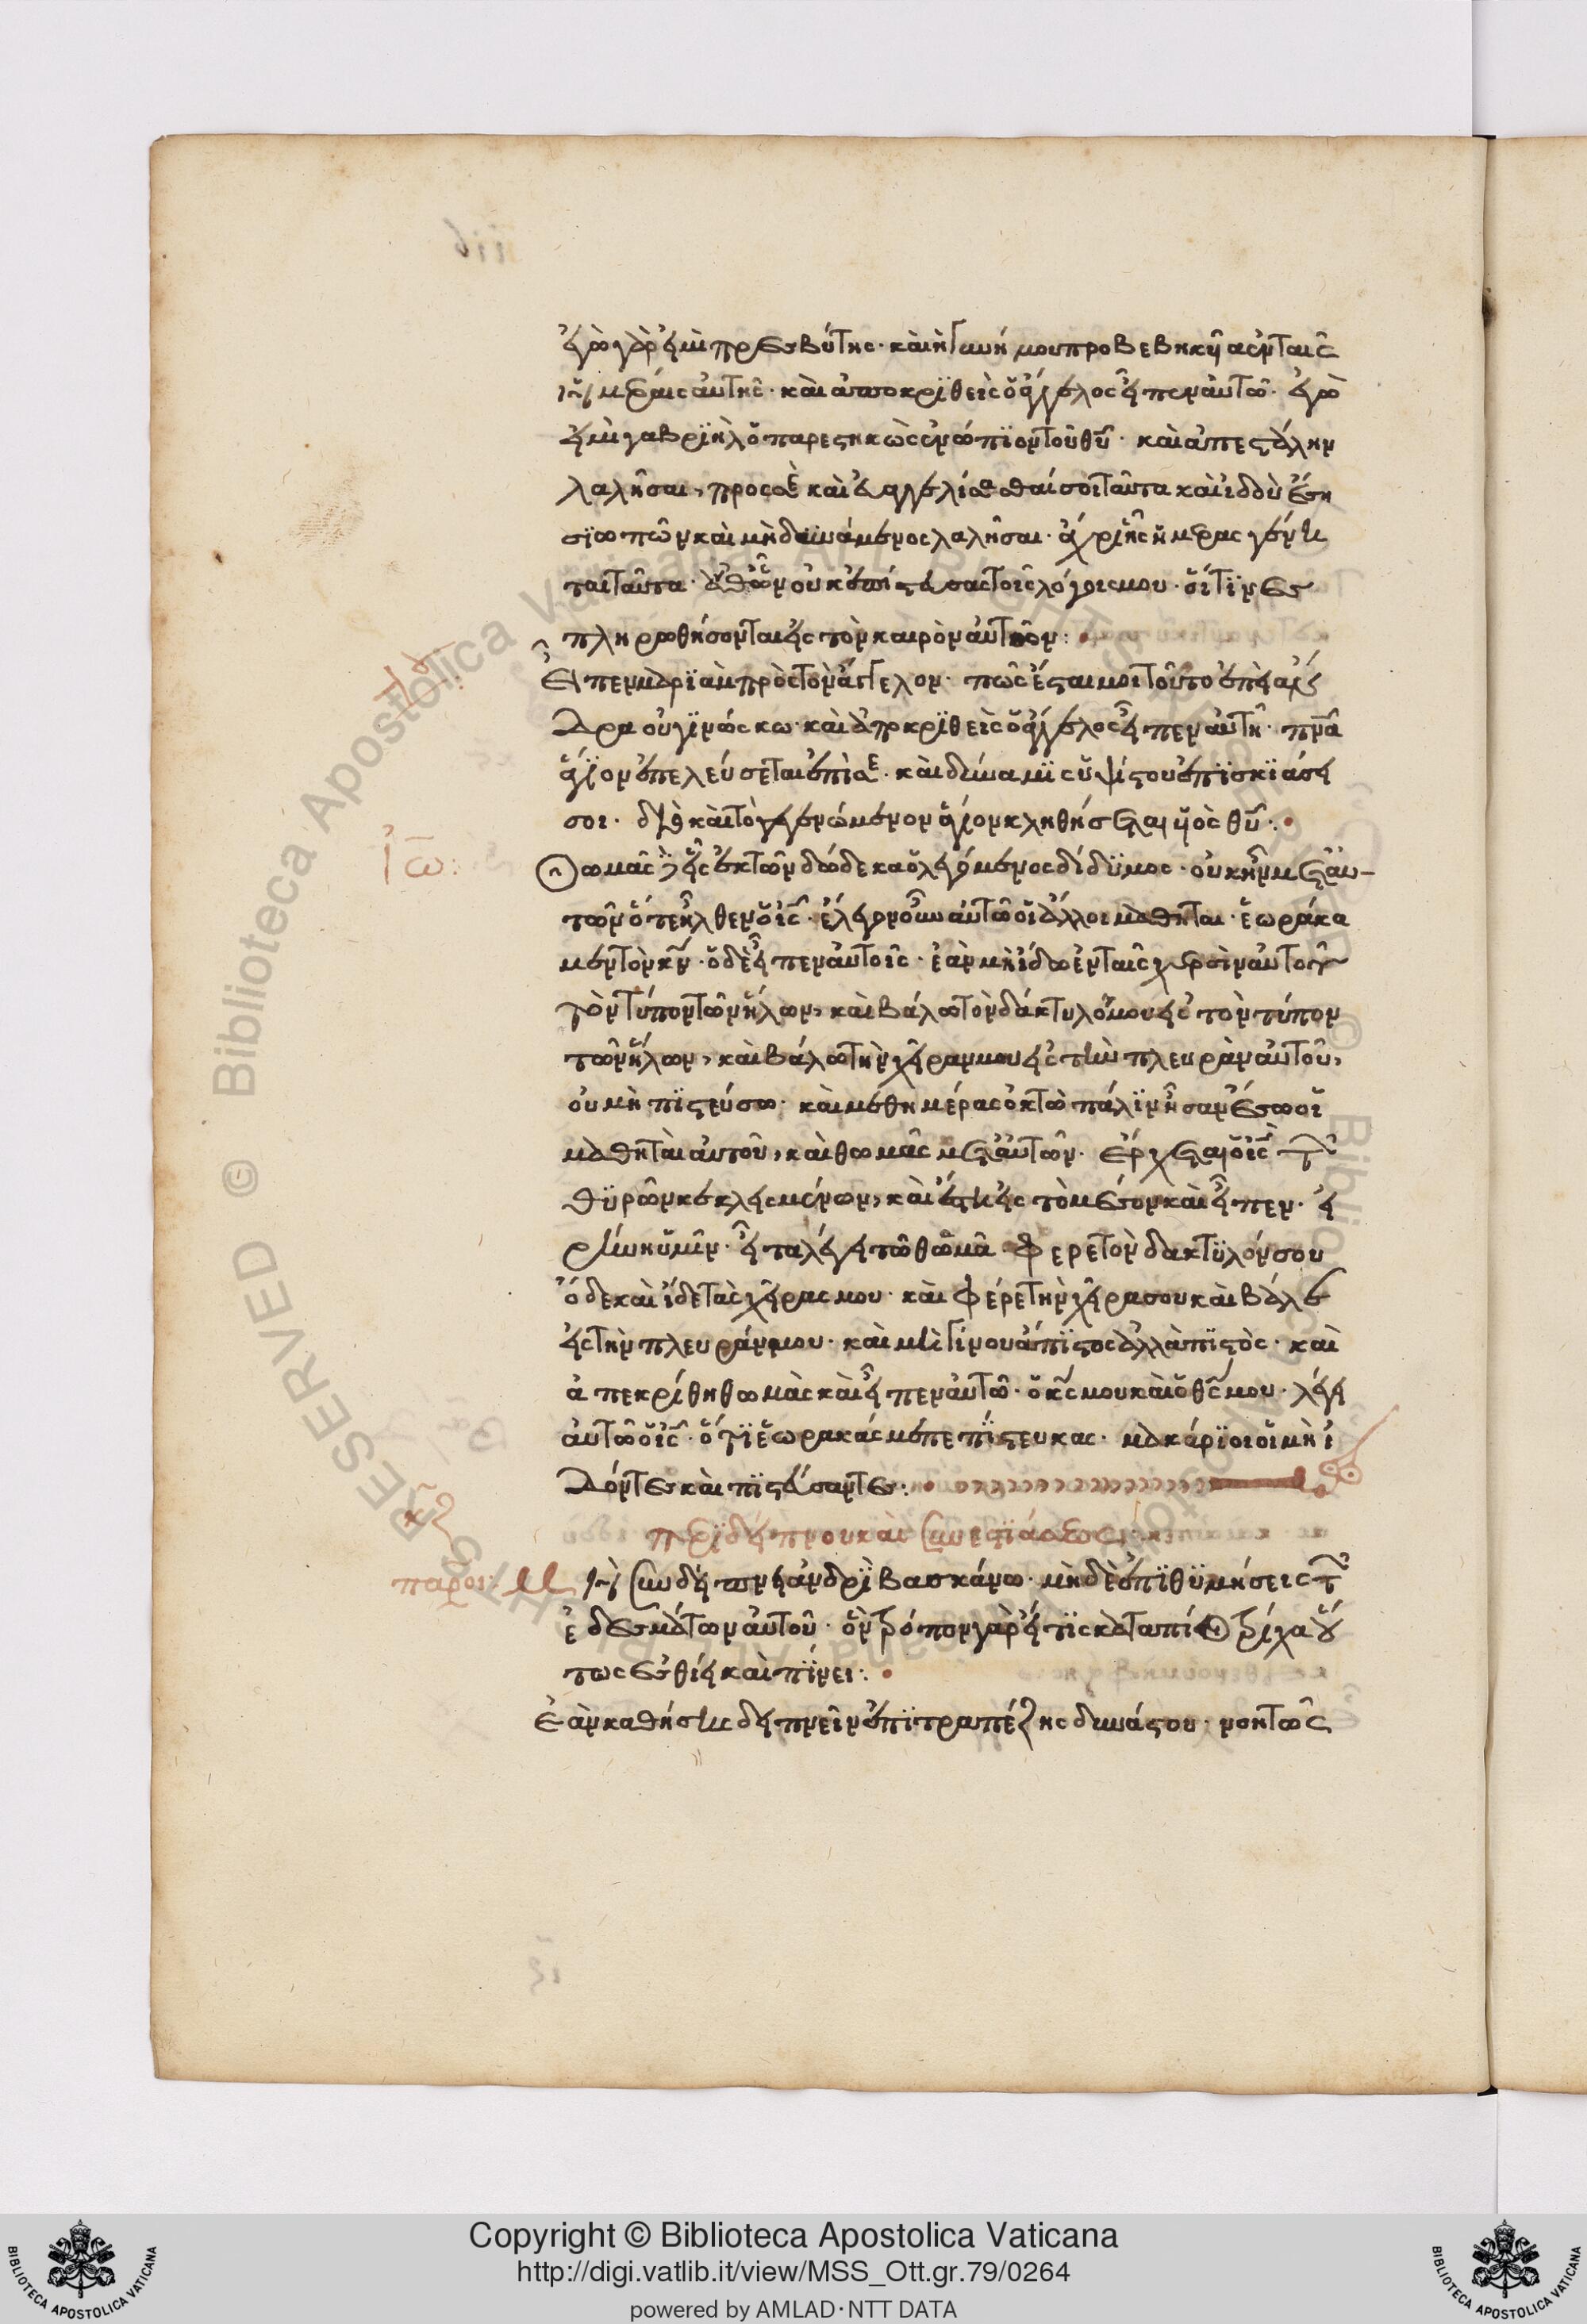 ἐγὼ γάρ εἰμι πρεσβύτης· καὶ ἡ γυνή μου προβεβηκυῖα ἐν ταῖς
ἡμέραις αὐτῆς· καὶ ἀποκριθεὶς ὁ ἄγγελος εἶπεν αὐτῶ· ἐγώ
εἰμι γαβριὴλ ὁ παρεστηκὼς ἐνώπιον τοῦ θυ· καὶ ἀπεστάλην
λαλῆσαι, προς σὲ καὶ εὐαγγελίσασθαί σοι ταῦτα καὶ ἰδοὺ ἔση
σιωπῶν καὶ μὴ δυνάμενος λαλῆσαι· ἄχρι ἧς ἡμέρας γένη
ται ταῦτα· ἀνθ' ὧν οὐκ ἐπίστευσας τοῖς λόγοις μου· οἵτινες
πληρωθήσονται εἰς τὸν καιρὸν αὐτῶν:
Εἶπεν μαριὰμ πρὸς τὸν ἄγγελον· πῶς ἔσται μοι τοῦτο ἐπεὶ ἄν
δρα οὐ γινώσκω· καὶ ἀποκριθεὶς ὁ ἄγγελος εἶπεν αὐτῆ· πνα
ἅγιον ἐπελεύσεται ἐπὶ σέ· καὶ δύναμις ὑψίστου ἐπισκιάσει
σοι· διὸ καὶ τὸ γεννώμενον ἅγιον κληθήσεται υἱὸς θυ:
ἰω:
Θωμᾶς εἷς ἐκ τῶν δώδεκα ὁ λεγόμενος δίδυμος· οὐκ ἦν μετ' αὐ-
τῶν ὅτε ἦλθεν ὁ ις· ἔλεγον οὖν αὐτῶ οἱ ἄλλοι μαθηταί· ἑωράκα
μεν τὸν κν· ὁ δὲ εἶπεν αὐτοῖς· ἐὰν μὴ ἴδω ἐν ταῖς χερσὶν αὐτοῦ
τὸν τύπον τῶν ἥλων, καὶ βάλω τὸν δάκτυλόν μου εἰς τὸν τύπον
τῶν ἥλων, καὶ βάλω τὴν χεῖραν μου εἰς τὴν πλευρὰν αὐτοῦ,
οὐ μὴ πιστεύσω· καὶ μεθ' ημέρας ὀκτὼ πάλιν ἦσαν ἔσω οἱ
μαθηταὶ αὐτοῦ, καὶ θωμᾶς μετ' αὐτῶν· ἔρχεται ὁ ις τῶν
θυρῶν κεκλεισμένων, καὶ ἔστη εἰς τὸ μέσον καὶ εἶπεν· εἰ
ρήνη ὑμῖν· εἶτα λέγει τῶ θωμᾶ φέρε τὸν δακτυλόν σου
ὧδε καὶ ἴδε τὰς χεῖρας μου· καὶ φέρε τὴν χεῖρα σου καὶ βάλε
εἰς τὴν πλευράν μου· καὶ μὴ γίνου ἄπιστος ἀλλὰ πιστὸς· καὶ
ἀπεκρίθη θωμὰς καὶ εἶπεν αὐτῶ· ὁ κς μου καὶ ὁ θς μου· λέγει
αὐτῶ ὁ ις· ὅτι ἑωρακάς με πεπίστευκας· μακάριοι οἱ μὴ ἰ
δόντες καὶ πιστεύσαντες:
περὶ δείπνου καὶ συνεστιάσεως:
παροι: Μὴ συνδείπνει ἀνδρὶ βασκάνω· μὴ δὲ ἐπιθυμήσεις τῶν
ἐδεσμάτων αὐτοῦ· ὃν τρόπον γὰρ εἴ τις καταπίοι τρίχα οὕ
τως ἐσθίει καὶ πίνει:
Ἐὰν καθήση δειπνεῖν ἐπὶ τραπέζης δυνάστου· νοητῶς
Copyright © Biblioteca Apostolica Vaticana
http://digi.vatlib.it/view/MSS_Ott.gr.79/0264
powered by AMLAD·NTT DATA